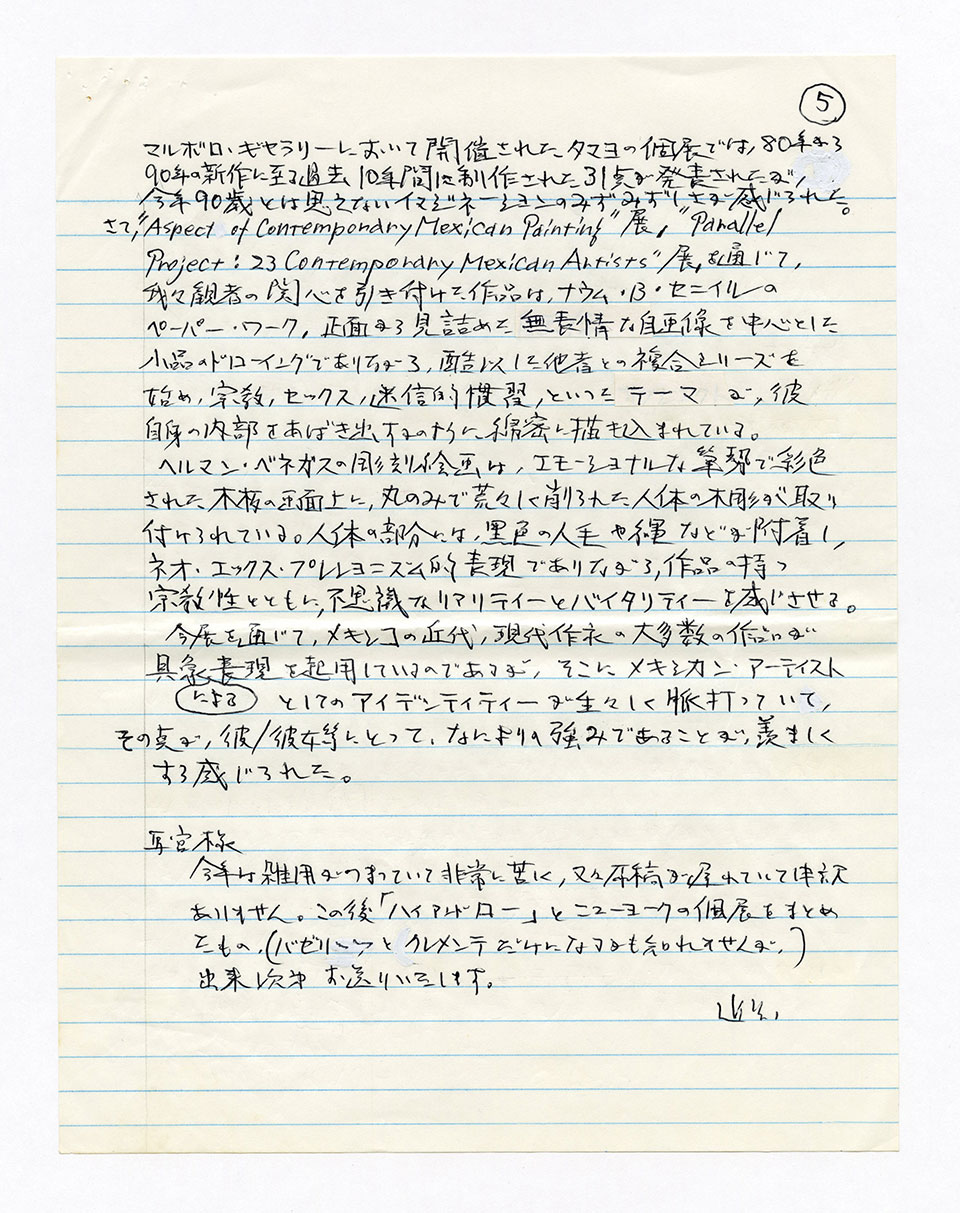 5
マルボロ・ギャラリーにおいて開催された、タマヨの個展では、80年から
90年の新作に至る過去10年間に制作された31点が発表されたが、
今年90歳とは思えないイマジネーションのみずみずしさが感じられた。
さて、"Aspect of Contemporary Mexican Painting"展, "Parallel
Project: 23 Contemporary Mexican Artists"展,を通じて、
我々観者の関心を引き付けた作品は、ナウム・B・セニイルの
ペーパー・ワーク, 正面から見詰めた無表情な自画像を中心とした
小品のドローイングでありながら, 酷似した他者との複合シリーズを
始め, 宗教, セックス, 迷信的慣習, といったテーマが, 彼
自身の内部をあばき出すかのように綿密に描き込まれている。
ヘルマン・ベネガスの彫刻絵画は, エモーショナルな筆勢で彩色
された木板の画面上に, 丸のみで荒々しく削られた人体の木彫が取り
付けられている。人体の部分には, 黒色の人毛や縄などが附着し,
ネオ・エックス・プレショニズム的表現でありながら, 作品の持つ
宗教性とともに, 不思議なリアリティーとバイタリティーを感じさせる。
今展を通じて, メキシコの近代, 現代作家の大多数の作品が
具象表現を起用しているのであるが, そこにメキシカン・アーティスト
による としてのアイデンティティーが生々しく脈打っていて,
その点が, 彼/彼女等にとって, なによりの強みであることが, 羨ましく
する感じられた。
耳宮様
今年は雑用がつまっていて非常に苦しく, 又々原稿が遅れていて申訳
ありません。この後「ハイアンドロー」とニューヨークの個展をまとめ
たもの, (バゼリッツとクレメンテだけになるかも知れませんが,)
出来次第お送りいたします。